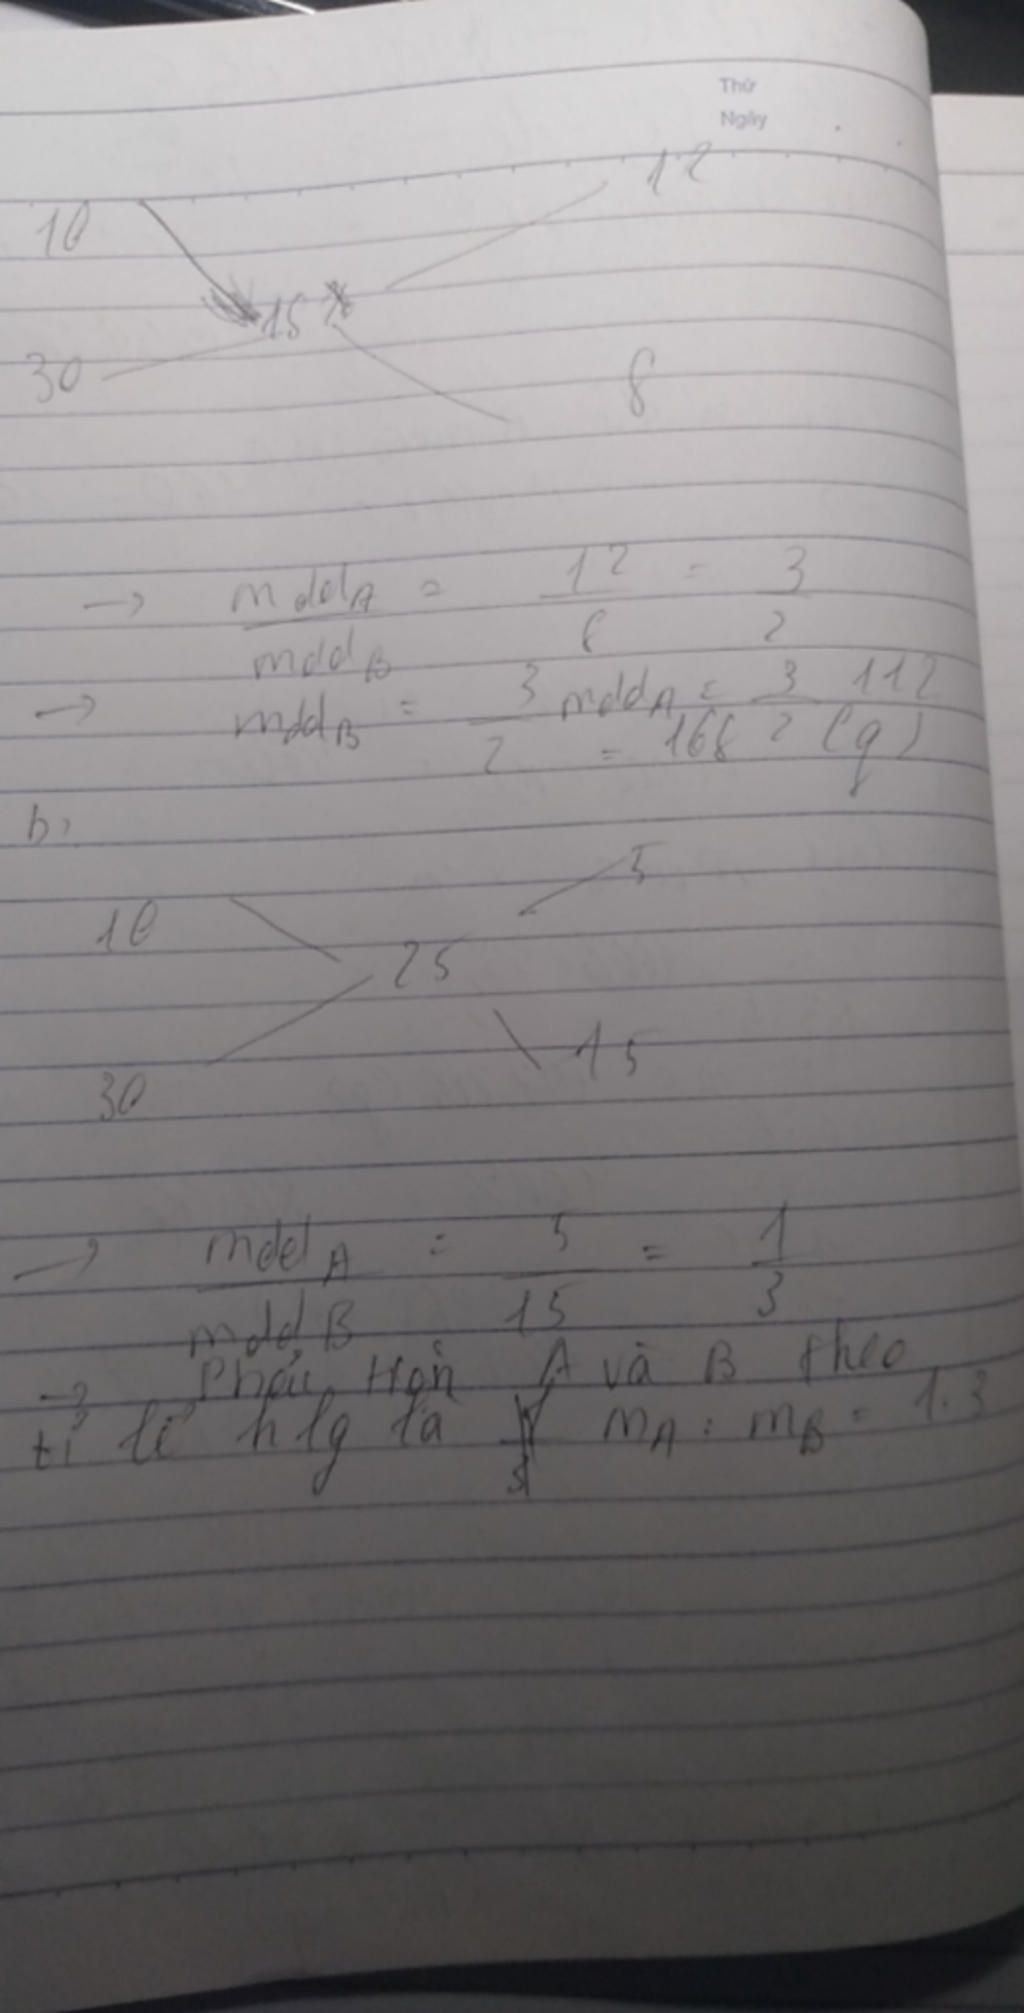 Thứ
Ngày
10 12
15
30 8
→ mddA = 12 = 3
mddB 8 2
→ mddB = 3 mddA = 3 112
2 = 168 2 (g)
b,
10 5
25
30 15
→ mddA = 5 = 1
mddB 15 3
→ Phải Hòn A và B theo
tỉ lệ hlg là mA : mB = 1:3